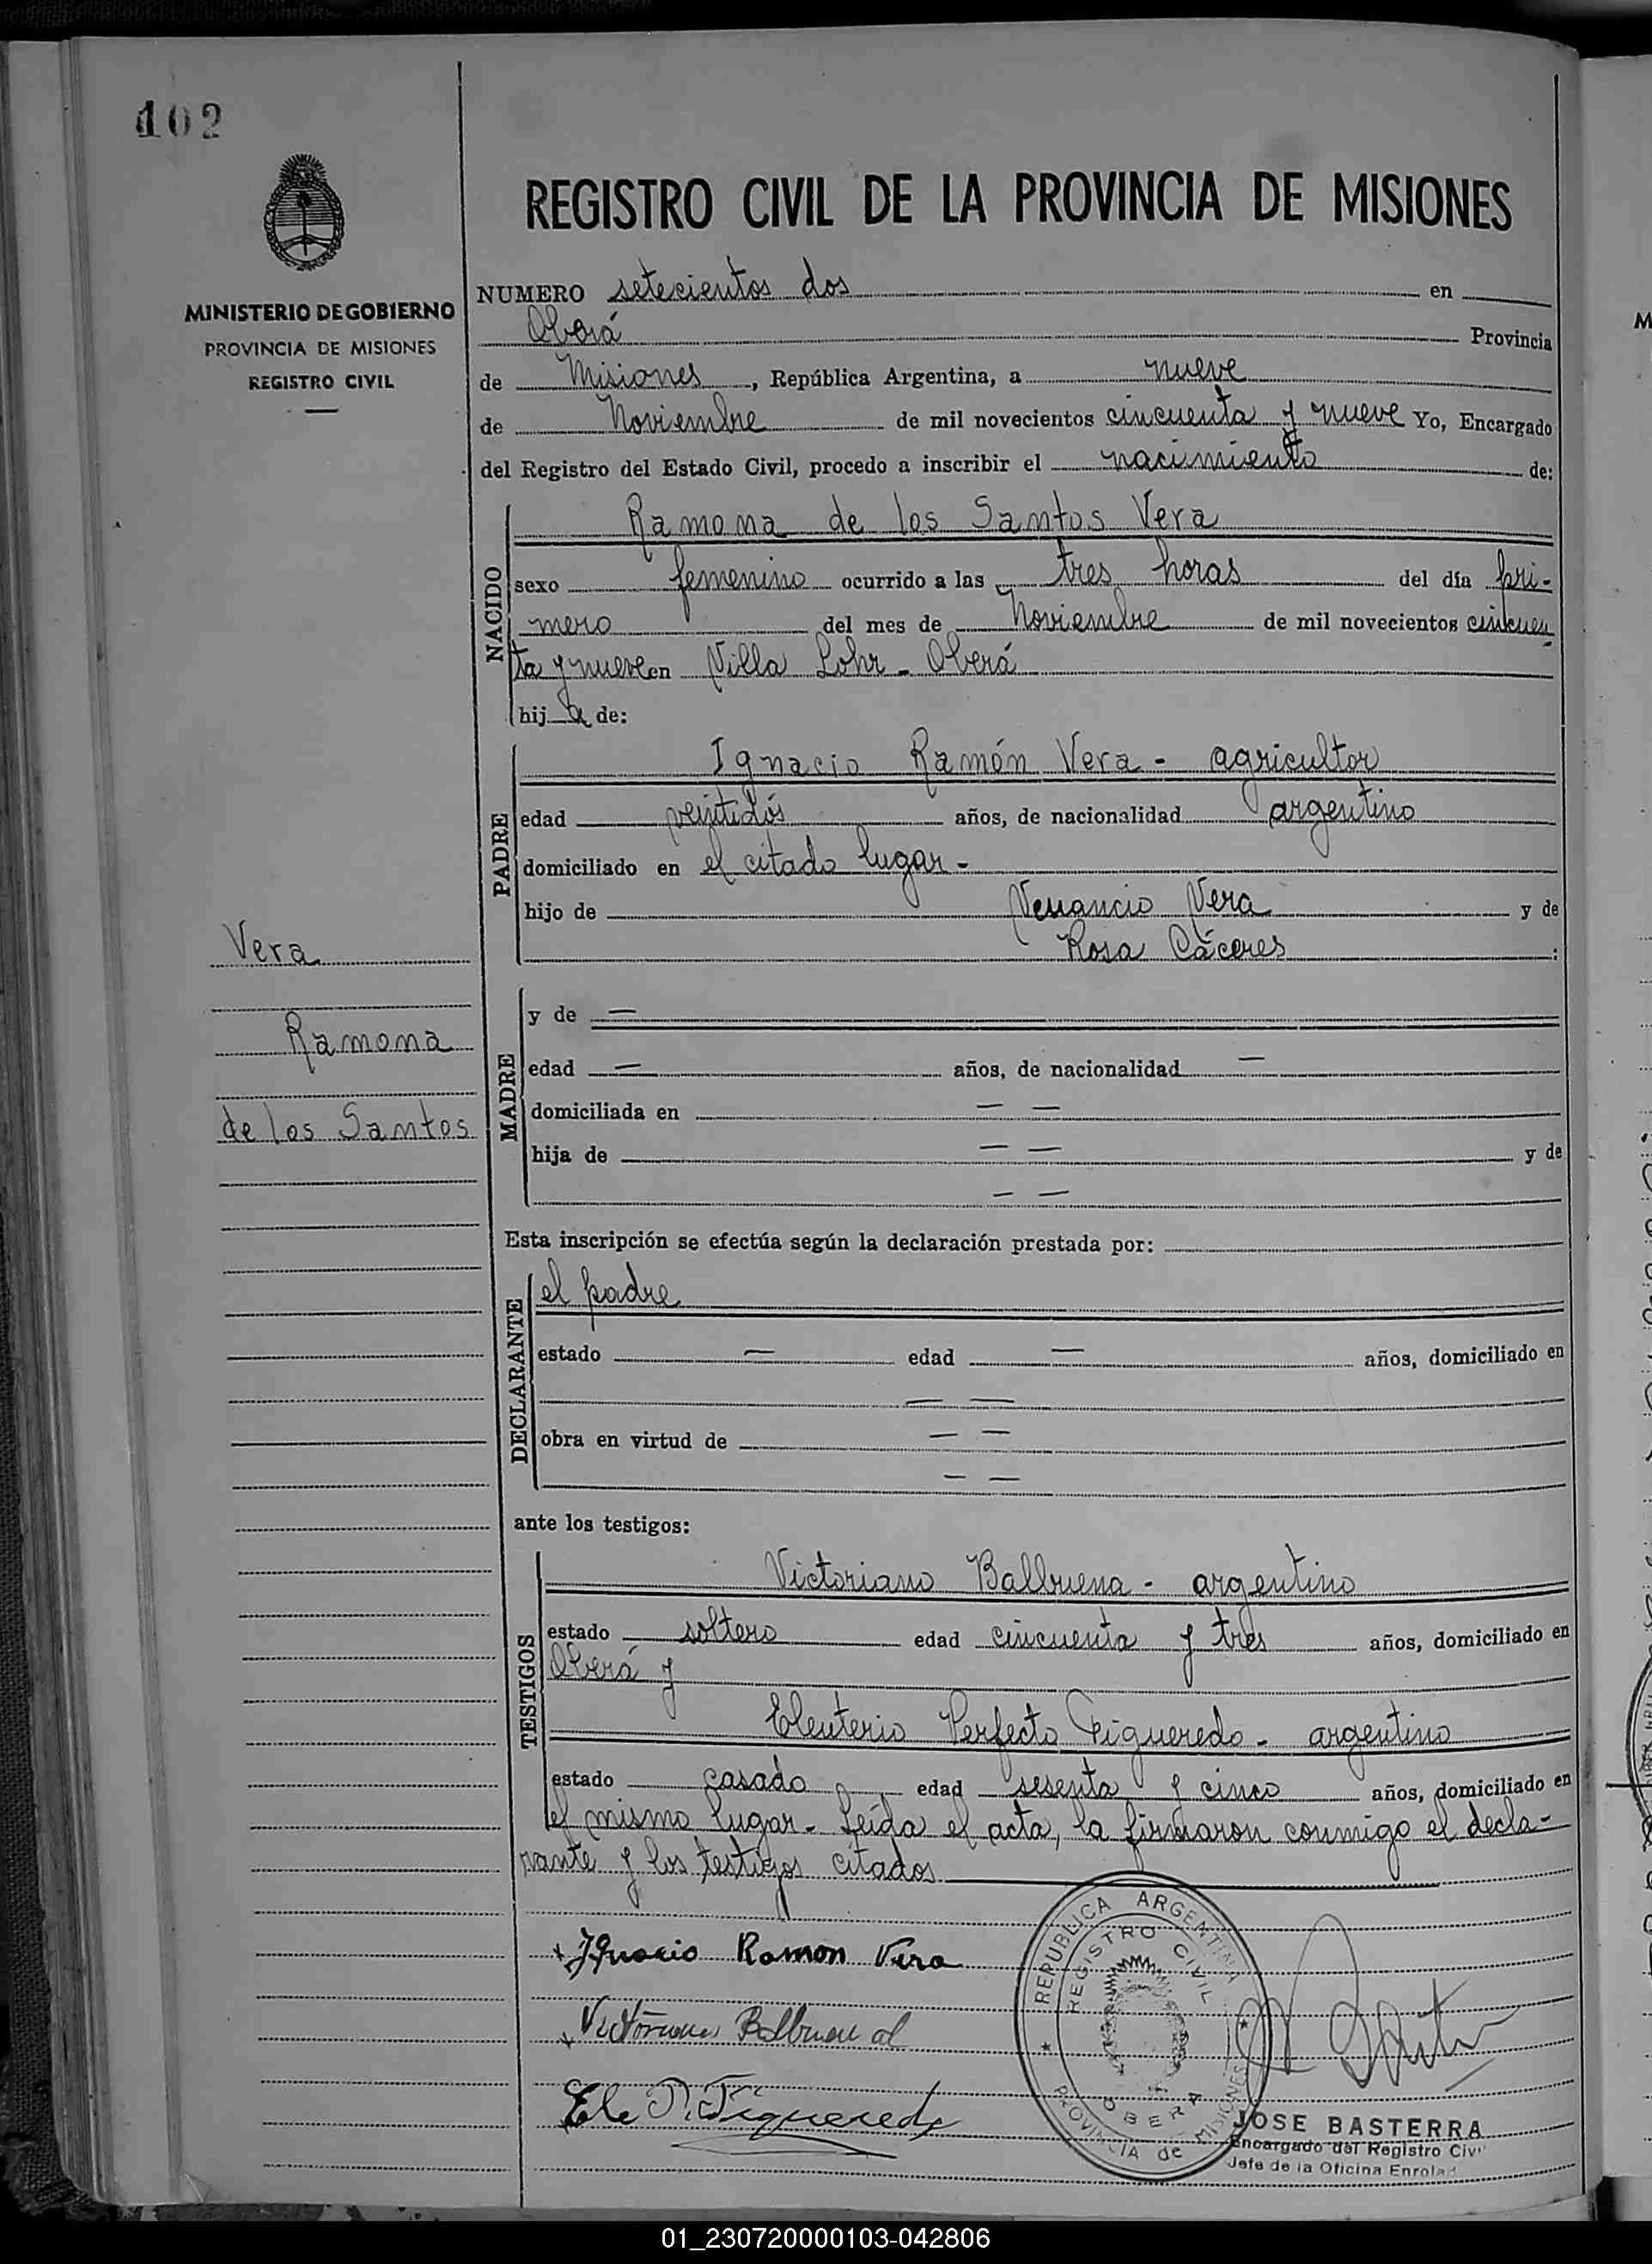 102
MINISTERIO DE GOBIERNO
PROVINCIA DE MISIONES
REGISTRO CIVIL
REGISTRO CIVIL DE LA PROVINCIA DE MISIONES
NUMERO setecientos dos en
Oberá Provincia
de Misiones, República Argentina, a nueve
de Noviembre de mil novecientos cincuenta y nueve Yo, Encargado
del Registro del Estado Civil, procedo a inscribir el nacimiento de:
NACIDO
Ramona de los Santos Vera
sexo femenino ocurrido a las tres horas del día pri-
mero del mes de Noviembre de mil novecientos cincuen
ta y nueve en Villa Lohr - Oberá
hij a de:
PADRE
Ignacio Ramón Vera - agricultor
edad veintidós años, de nacionalidad argentino
domiciliado en el citado lugar -
hijo de Venancio Vera y de
Rosa Cáceres :
Vera
Ramona
de los Santos
MADRE
y de —
edad — años, de nacionalidad —
domiciliada en — —
hija de — — y de
— —
Esta inscripción se efectúa según la declaración prestada por:
DECLARANTE
el padre
estado — edad — años, domiciliado en
— —
obra en virtud de — —
— —
ante los testigos:
TESTIGOS
Victoriano Balbuena - argentino
estado soltero edad cincuenta y tres años, domiciliado en
Oberá y
Eleuterio Perfecto Figueredo - argentino
estado casado edad sesenta y cinco años, domiciliado en
el mismo lugar - Leída el acta, la firmaron conmigo el decla-
rante y los testigos citados
Ignacio Ramon Vera
Ele P. Figueredo
REPUBLICA ARGENTINA
REGISTRO CIVIL
OBERA
PROVINCIA de MISIONES
JOSE BASTERRA
Encargado del Registro Civi
Jefe de la Oficina Enrola
01_230720000103-042806